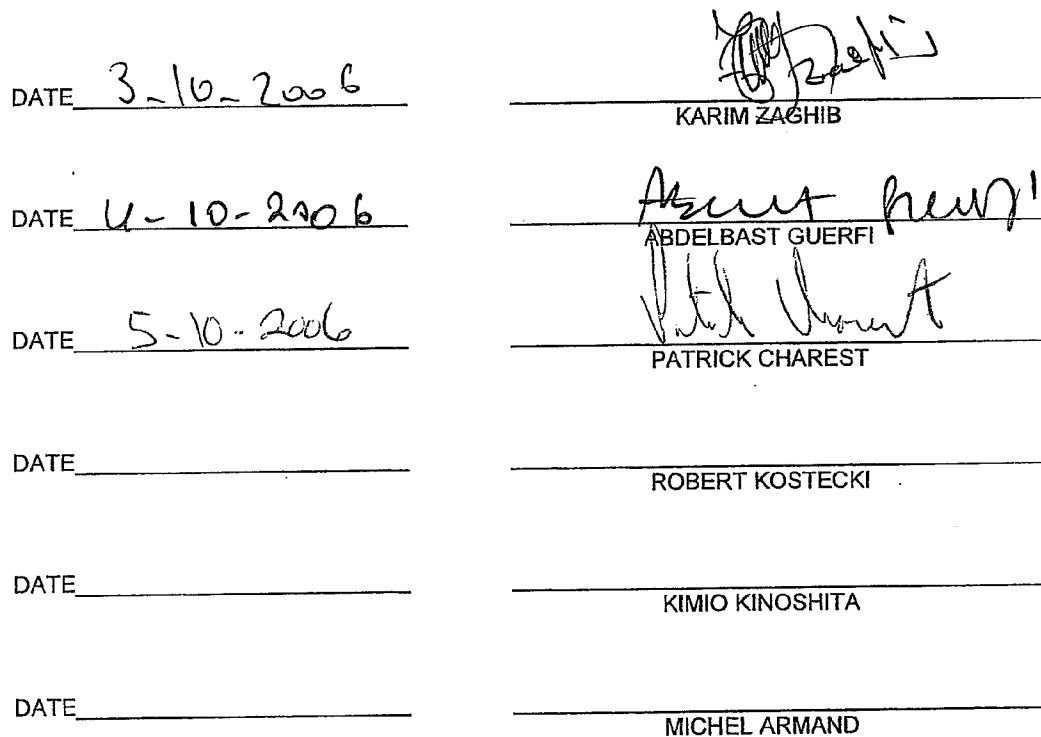 DATE 3-10-2006
Zaghib
KARIM ZAGHIB
DATE 4-10-2006
ABDELBAST GUERFI
DATE 5-10-2006
PATRICK CHAREST
DATE
ROBERT KOSTECKI
DATE
KIMIO KINOSHITA
DATE
MICHEL ARMAND